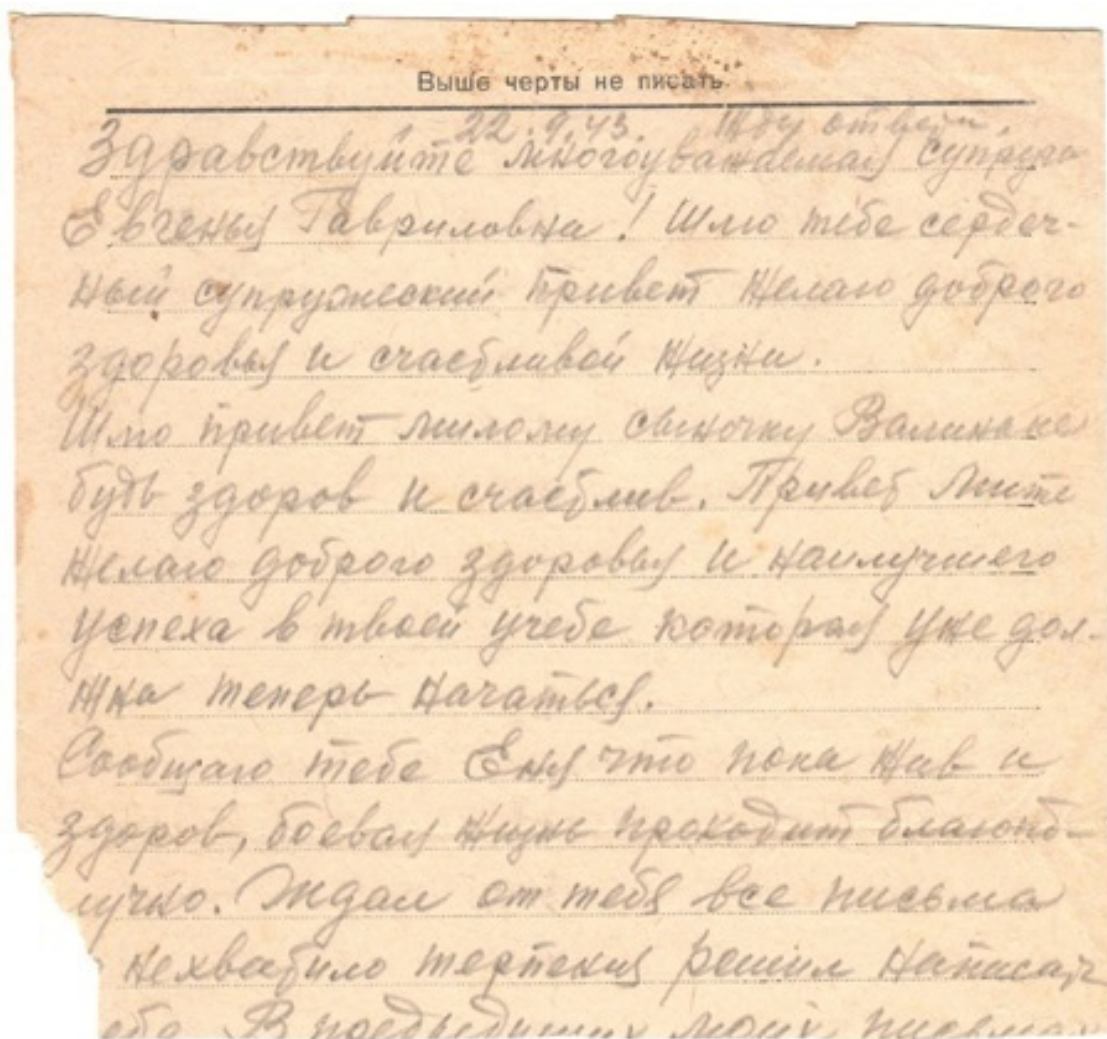 Выше черты не писать.
22.9.43. Жду ответа.
Здравствуйте многоуважаемая супруга
Евгенья Гавриловна! Шлю тебе сердеч-
ный супружеский привет желаю доброго
здоровья и счастливой жизни.
Шлю привет милому сыночку
будь здоров и счастлив. Привет Мите
желаю доброго здоровья и наилучшего
успеха в твоей учебе которая уже дол-
жна теперь начаться.
Сообщаю тебе Еня что пока жив и
здоров, боевая жизнь проходит благопо-
лучно. Ждал от тебя все письма
нехватило терпения решил написать
ебе. В предыдущих моих письмах